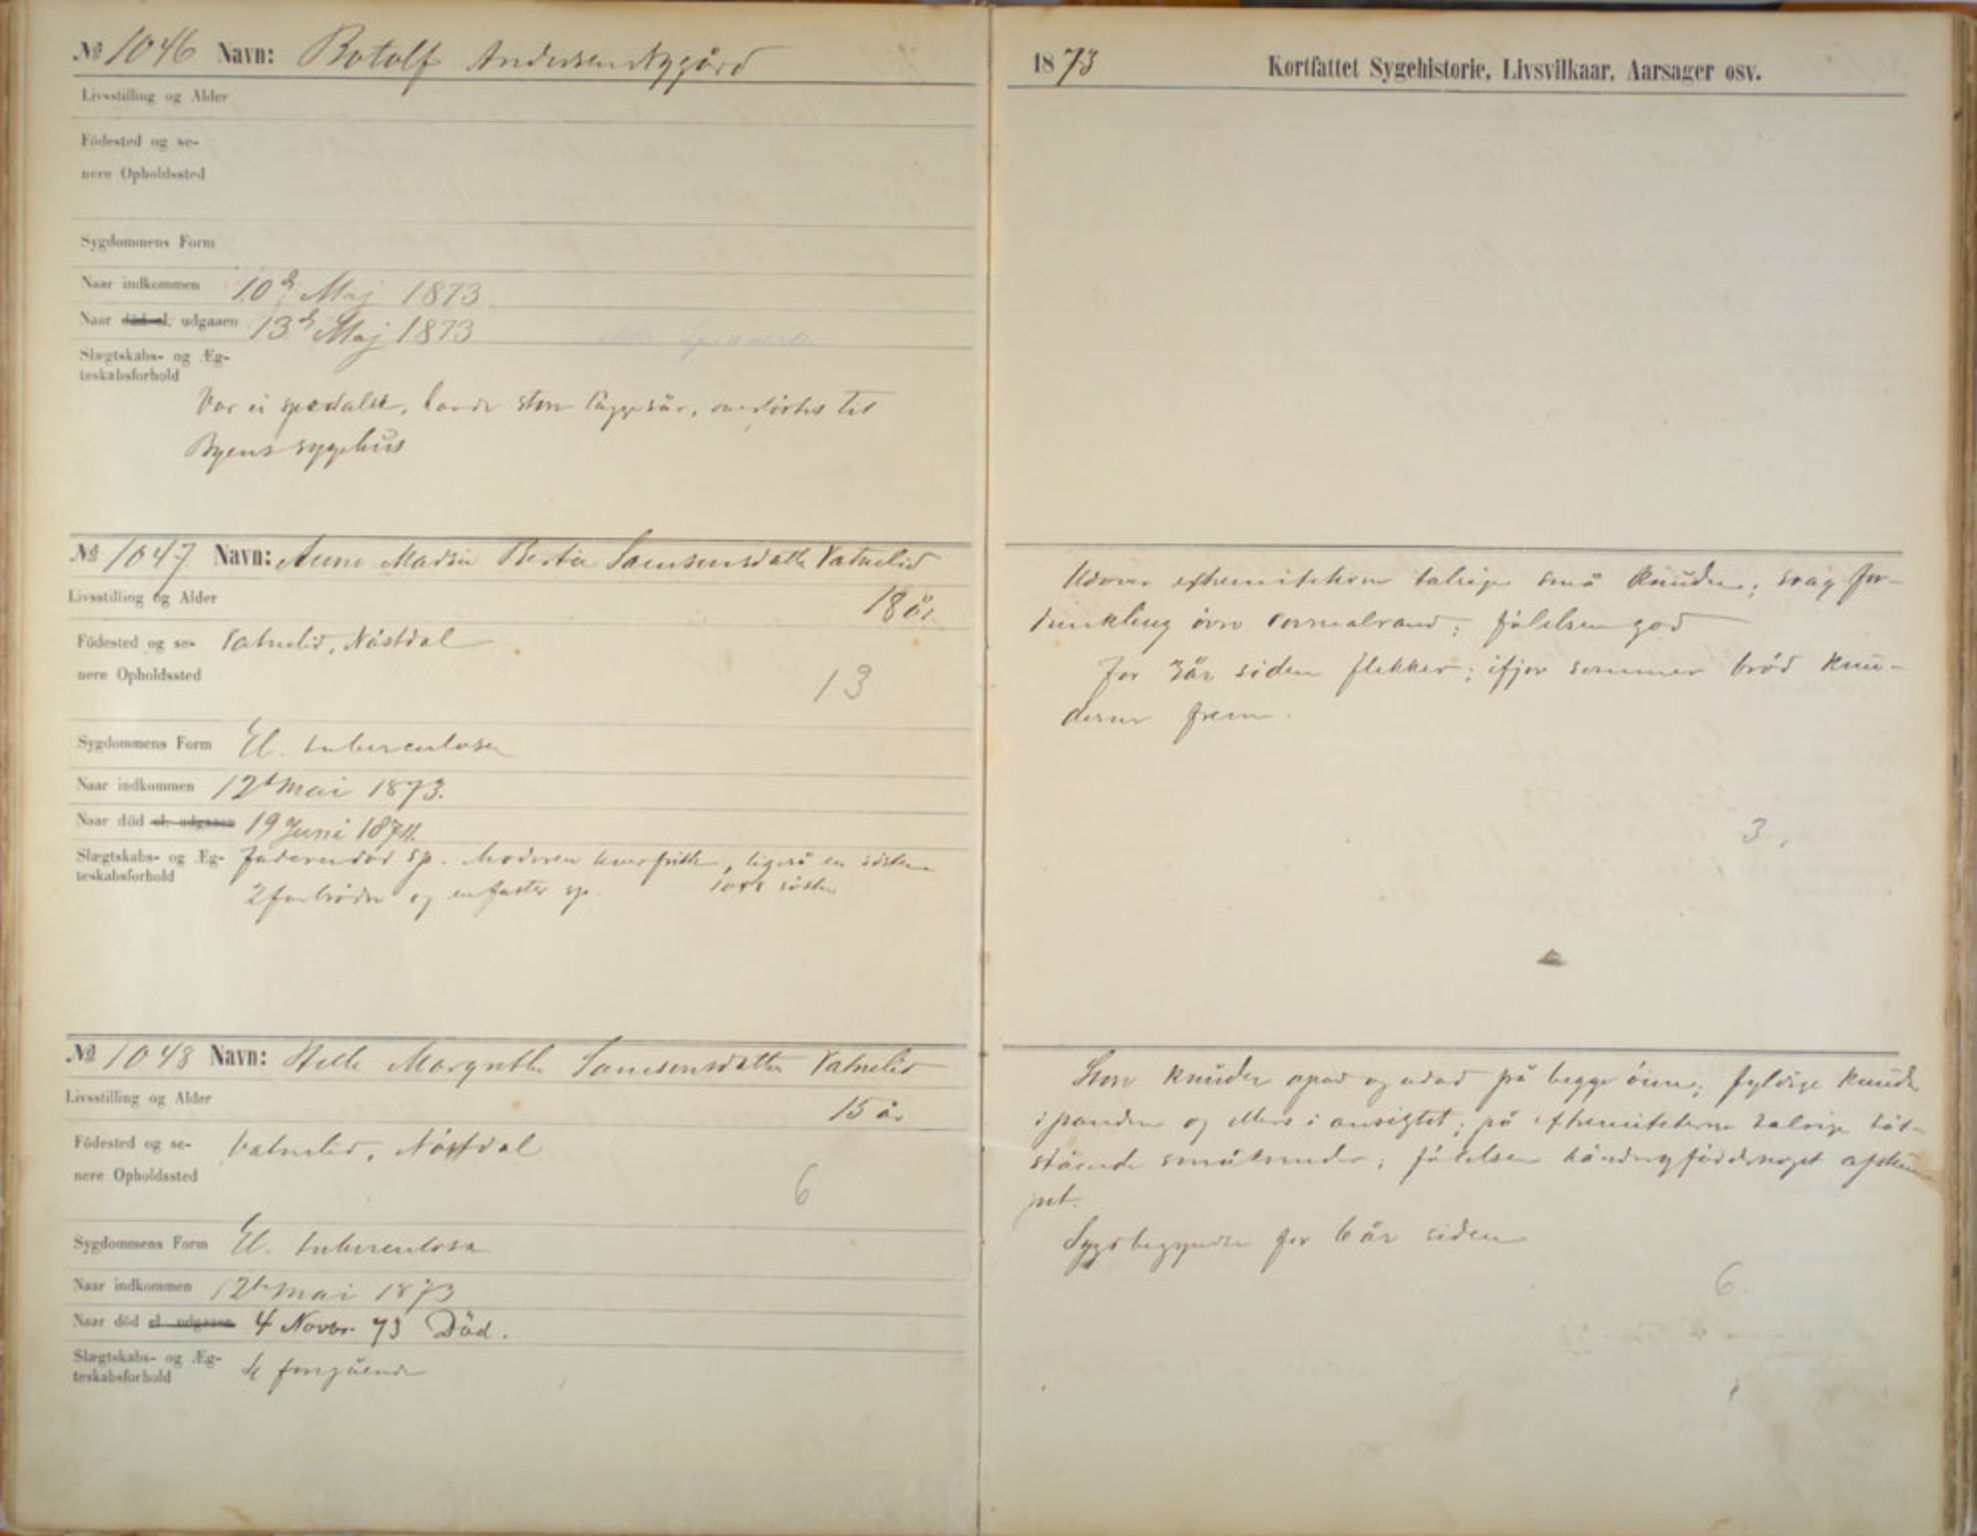 № 1046 Navn: Botolf Andersen Nygård
Livsstilling og Alder
Födested og se-
nere Opholdssted
Sygdommens Form
Naar indkommen 10d Maj 1873
Naar död el. udgaaen 13d Maj 1873
Slægtskabs- og Æg-
teskabsforhold
Var ei spedalsk, havde store liggesår, overførtes til
Byens sygehus
№ 1047 Navn: Anne Madsia Berta Samsonsdatter Vatnelid
Livsstilling og Alder 18 år
Födested og se- Vatnelid, Nåstdal
nere Opholdssted 13
Sygdommens Form El. tuberculosa
Naar indkommen 12te Mai 1873.
Naar död el. udgaaen 19 Juni 1874.
Slægtskabs- og Æg- Faderen död sp. Moderen frisk, ligeså en söster
teskabsforhold 2 farbrödre og en faster sp.
№ 1048 Navn: Margrethe Samsonsdatter Vatnelid
Livsstilling og Alder 15 år
Födested og se- Vatnelid, Nåstdal
nere Opholdssted 6
Sygdommens Form El. tuberculosa
Naar indkommen 12te Mai 1873
Naar död el. udgaaen 4 Novbr 73 Död.
Slægtskabs- og Æg- foregående
teskabsforhold
1873 Kortfattet Sygehistorie, Livsvilkaar, Aarsager osv.
extremiteterne talrige små knuder; svag for-
dunkling övre cornealrand; fölelsen god
For 3 år siden flekker; ifjor sommer bröd knu-
derne frem.
3.
Store knuder opad og udad på begge öine; fyldige knuder
i panden og ellers i ansigtet; på extremiteterne talrige tæt-
stående småknuder; fölelsen hænder og födder noget afstum
pet.
Sygd begyndte for 6 år siden
6.